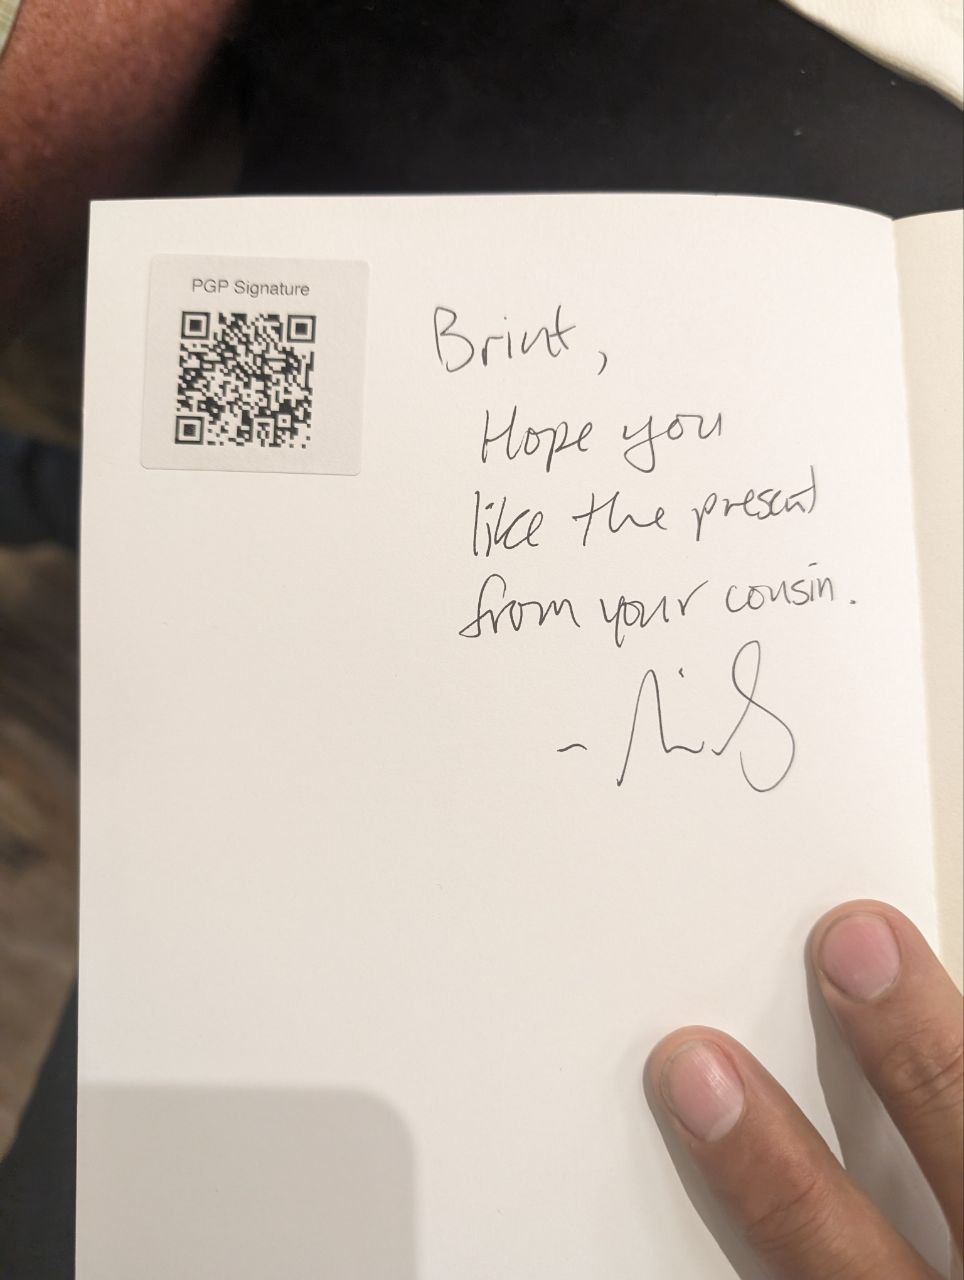 PGP Signature
Brint,
Hope you
like the present
from your cousin.